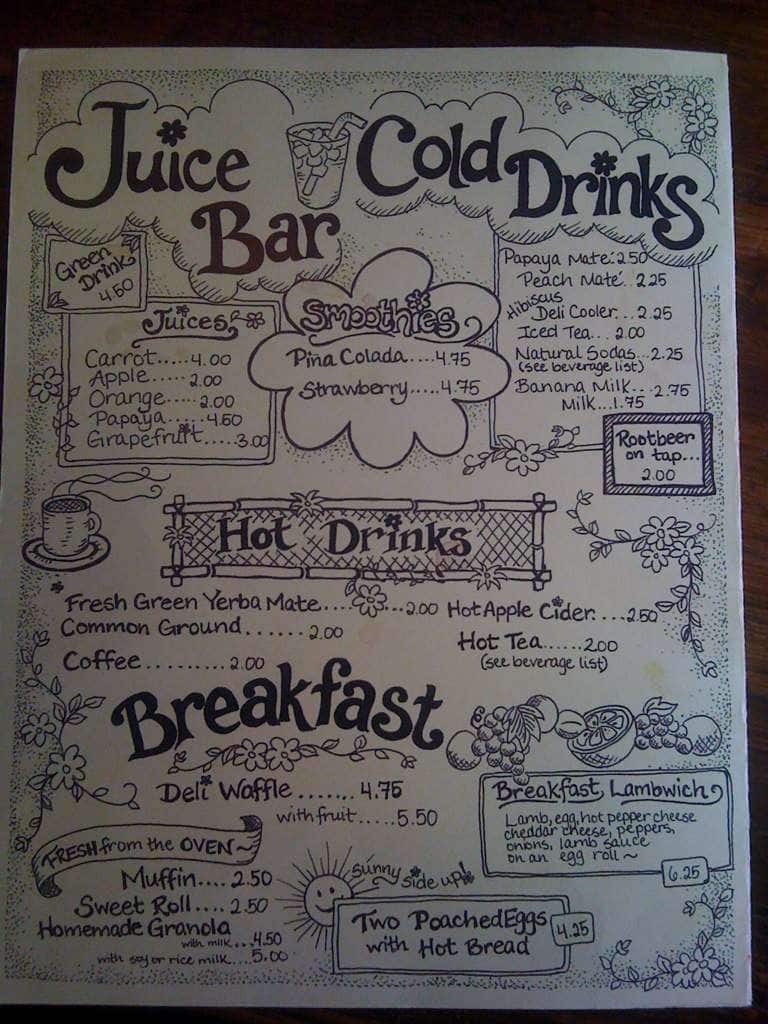 Juice Bar
Cold Drinks
Green Drink
4.50
Juices
Carrot.....4.00
Apple.....2.00
Orange.....2.00
Papaya.....4.50
Grapefruit....3.00
Smoothies
Pina Colada....4.75
Strawberry.....4.75
Papaya Maté.2.50
Peach Maté. 2.25
Hibiscus
Deli Cooler...2.25
Iced Tea... 2.00
Natural Sodas..2.25
(see beverage list)
Banana Milk...2.75
Milk...1.75
Rootbeer
on tap...
2.00
Hot Drinks
Fresh Green Yerba Mate.......2.00
Common Ground......2.00
Coffee.........2.00
Hot Apple Cider....2.50
Hot Tea.....2.00
(see beverage list)
Breakfast
Deli Waffle ....... 4.75
with fruit.....5.50
FRESH from the OVEN~
Muffin....2.50
Sweet Roll....2.50
Homemade Granola
with milk...4.50
with soy or rice milk...5.00
Breakfast Lambwich
Lamb, egg, hot pepper cheese
cheddar cheese, peppers,
onions, lamb sauce
on an egg roll~
6.25
sunny side up!
Two Poached Eggs
with Hot Bread
4.25